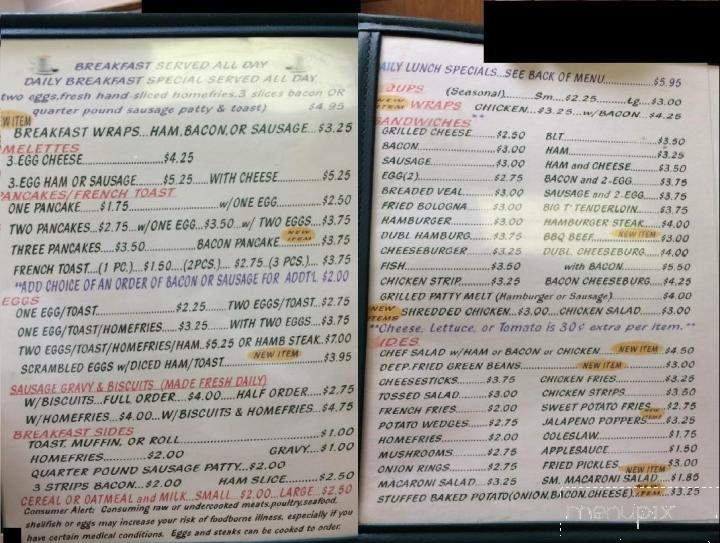 BREAKFAST SERVED ALL DAY
DAILY BREAKFAST SPECIAL SERVED ALL DAY
two eggs,fresh hand-sliced homefries,3 slices bacon OR
quarter pound sausage patty & toast) $4.95
W ITEM
BREAKFAST WRAPS...HAM,BACON,OR SAUSAGE...$3.25
MELETTES
3-EGG CHEESE....................$4.25
3-EGG HAM OR SAUSAGE.....$5.25.....WITH CHEESE..........$5.25
PANCAKES/FRENCH TOAST
ONE PANCAKE.....$1.75..................w/ONE EGG..........$2.50
TWO PANCAKES...$2.75...w/ONE EGG...$3.50...w/ TWO EGGS...$3.75
THREE PANCAKES....$3.50..............BACON PANCAKE NEW ITEM $3.75
FRENCH TOAST...(1 PC.)...$1.50....(2PCS.)... $2.75..(3 PCS.)... $3.75
"ADD CHOICE OF AN ORDER OF BACON OR SAUSAGE FOR ADDT'L $2.00
EGGS
ONE EGG/TOAST....................$2.25.......TWO EGGS/TOAST..$2.75
ONE EGG/TOAST/HOMEFRIES.....$3.25......WITH TWO EGGS....$3.75
TWO EGGS/TOAST/HOMEFRIES/HAM..$5.25 OR HAMB STEAK.$7.00
SCRAMBLED EGGS w/DICED HAM/TOAST........NEW ITEM........$3.95
SAUSAGE GRAVY & BISCUITS (MADE FRESH DAILY)
W/BISCUITS...FULL ORDER....$4.00....HALF ORDER....$2.75
W/HOMEFRIES...$4.00...W/BISCUITS & HOMEFRIES...$4.75
BREAKFAST SIDES
TOAST, MUFFIN, OR ROLL..............................$1.00
HOMEFRIES..........$2.00 GRAVY....$1.00
QUARTER POUND SAUSAGE PATTY..$2.00
3 STRIPS BACON...$2.00 HAM SLICE.......$2.50
CEREAL OR OATMEAL and MILK...SMALL...$2.00...LARGE...$2.50
Consumer Alert: Consuming raw or undercooked meats,poultry,seafood,
shellfish or eggs may increase your risk of foodborne illness, especially if you
have certain medical conditions. Eggs and steaks can be cooked to order.
AILY LUNCH SPECIALS...SEE BACK OF MENU.............$5.95
OUPS (Seasonal)........Sm....$2.25........Lg....$3.00
NEW ITEM WRAPS CHICKEN...$3.25...w/BACON...$4.25
SANDWICHES**
GRILLED CHEESE........$2.50 BLT........................$3.50
BACON....................$3.00 HAM.......................$3.25
SAUSAGE.................$3.00 HAM and CHEESE........$3.50
EGG(2)....................$2.75 BACON and 2-EGG......$3.75
BREADED VEAL..........$3.00 SAUSAGE and 2-EGG...$3.75
FRIED BOLOGNA........$3.00 BIG T' TENDERLOIN.....$3.75
HAMBURGER.............$3.00 HAMBURGER STEAK.....$4.00
DUBL HAMBURG........$3.75 BBQ BEEF NEW ITEM $3.00
CHEESEBURGER.........$3.25 DUBL CHEESEBURG.....$4.00
FISH.......................$3.50 with BACON..........$5.50
CHICKEN STRIP.........$3.25 BACON CHEESEBURG....$4.25
GRILLED PATTY MELT (Hamburger or Sausage)................$4.00
NEW ITEMS SHREDDED CHICKEN...$3.00....CHICKEN SALAD......$3.00
**Cheese, Lettuce, or Tomato is 30¢ extra per item.**
IDES
CHEF SALAD w/HAM or BACON or CHICKEN....NEW ITEM..$4.50
DEEP-FRIED GREEN BEANS..............NEW ITEM..........$3.00
CHEESESTICKS..........$3.75 CHICKEN FRIES............$3.25
TOSSED SALAD..........$3.00 CHICKEN STRIPS..........$3.50
FRENCH FRIES...........$2.00 SWEET POTATO FRIES....$2.75
POTATO WEDGES........$2.75 JALAPENO POPPERS NEW ITEM $3.25
HOMEFRIES..............$2.00 COLESLAW.................$1.75
MUSHROOMS.............$2.75 APPLESAUCE..............$1.50
ONION RINGS............$2.75 FRIED PICKLES NEW ITEM $3.00
MACARONI SALAD.......$3.25 SM. MACARONI SALAD....$1.85
STUFFED BAKED POTATO(ONION,BACON,CHEESE). ITEM...$3.25
menupix